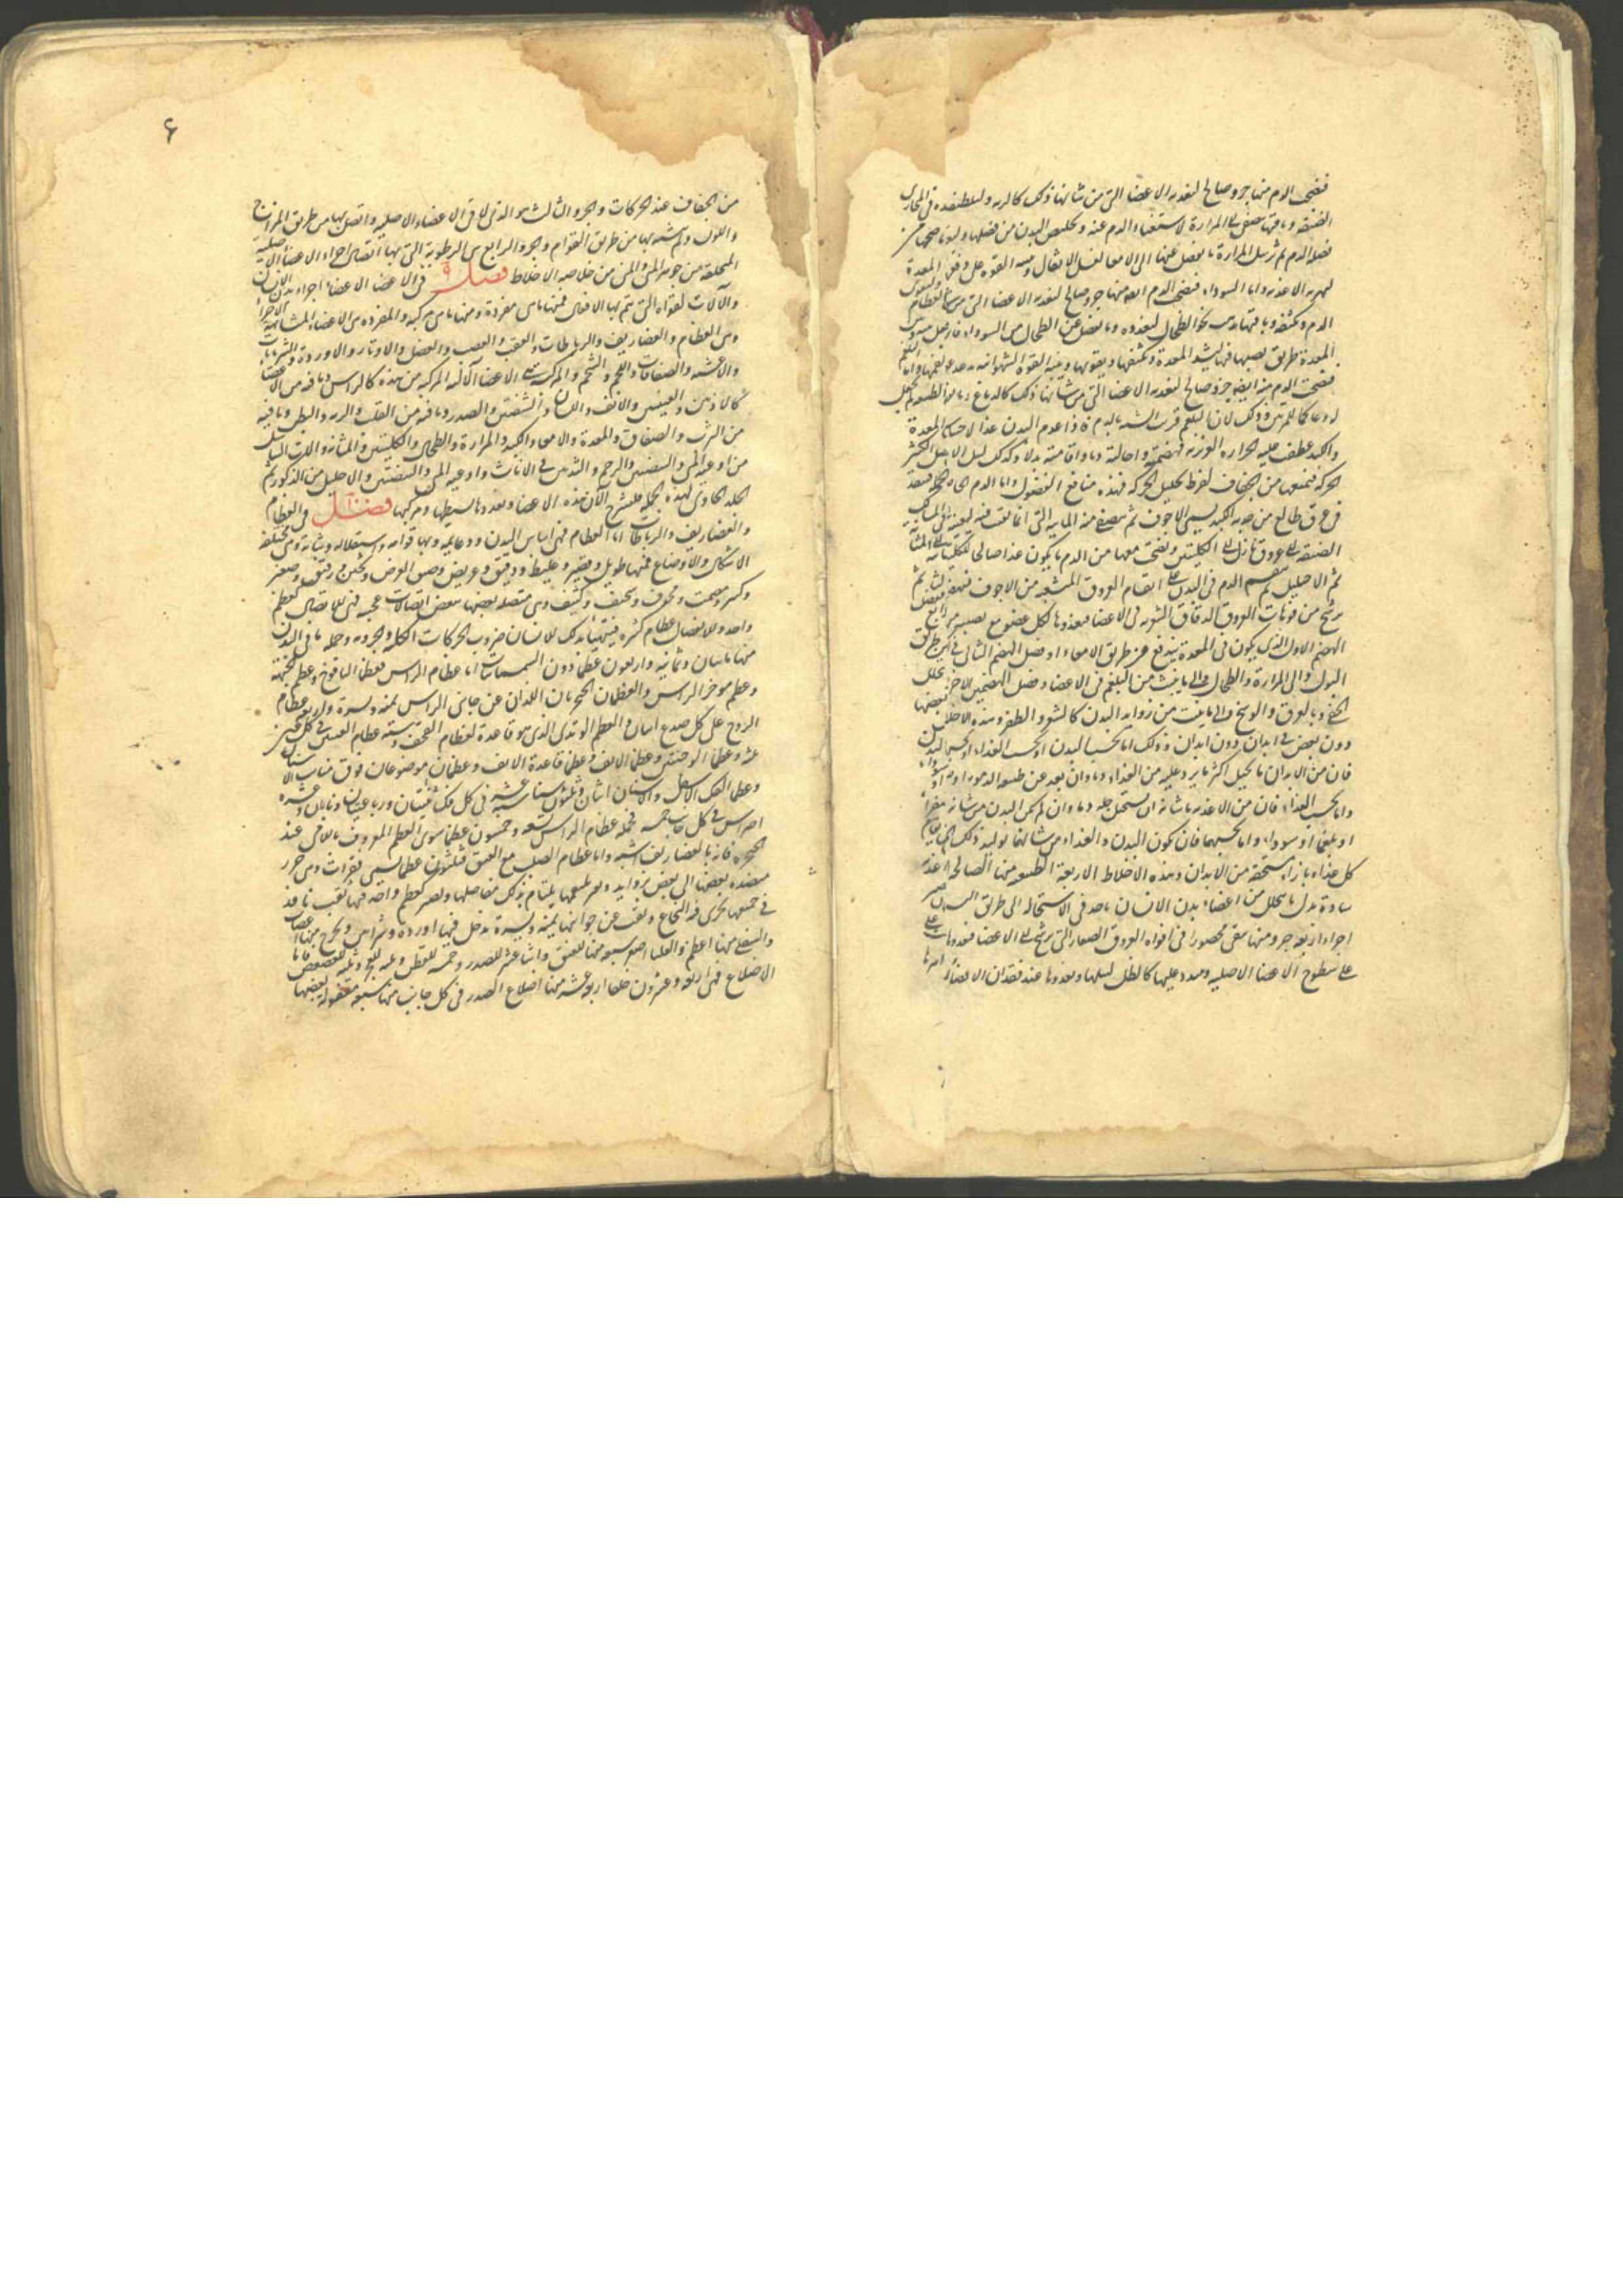 فتصحب الدم منها جزو صالح لتغذيه الاعضا التى من شانها ذلك كالريه ولتلطيفه فى المجارى
الضيقه وباقيها يتصفى الى المرارة لاستغناء الدم عنه وتخليص البدن من فضلها
فضله الدم ثم ترسل المرارة ما يفضل عنها الى الامعا لغسل الاثقال
الاغذيه واما السوداء فتصحب الدم ايضا منها جزو صالح لتغذيه الاعضا التى من شانها كالعظام
الدم وباقيها نحو الطحال لتغذوه وما يفضل عن الطحال من السوداء
المعدة طريق يصبها فيها ليشد المعدة ويكثفها ويقويها وينبه القوة الشهوانيه
فتصحب الدم منه ايضا جزو صالح لتغذيه الاعضا التى من شانها ذلك كالدماغ
لان البلغم قريب الشبه بالدم فاذا عدم البدن غذا لاحتباس المعدة
والكبد عطف عليه الحرارة الغريزيه فهضمته واحالته دما واقامته بدلا وكذلك ليبل الاعضا الكثير
الحركه فيمنعها من الجفاف لفرط تحليل الحركه فهذه منافع الفضول واما الدم
فى عرق طالع من حدبه الكبد يسمى الاجوف ثم يتصفى منه المايه التى
الضيقه الى عروق نازله الى الكليتين وتصحب معها من الدم ما يكون غذا صالحا للكليتين الى المثانه
ثم الاحليل ثم ينقسم الدم فى البدن على اقسام العروق المتشعبه من الاجوف
يرشح من فوهات العروق الدقاق الشعريه فى الاعضا فيغذوها لكل عضو مع نصيبه
الهضم الاول الذى يكون فى المعدة يندفع عن طريق الامعاء وفضل الهضم الثانى فى الكبد طريق
البول والى المرارة والطحال والى ما ينبث من البلغم فى الاعضا وفضل الهضمين الاخيرين تحلل
الخفى وبالعرق والوسخ والى ما ينبت من زوايد البدن كالشعر والظفر وهذه الاخلاط بعضها
دون بعض فى ابدان دون ابدان وذلك اما بحسب البدن او بحسب الغذاء
فان من الابدان ما يحيل اكثر ما يرد عليه من الغذاء دما وان بعد عن طبيعه الدمويه
واما بحسب الغذاء فان من الاغذيه ما شانه ان يستحيل جله دما وان لم يكن البدن من شانه
او بلغما او سوداء واما بحسبهما فان يكون البدن والغذاء من شانهما توليد ذلك
كل غذاء بازاء مستحقه من الابدان وهذه الاخلاط الاربعة الطبيعيه منها الصالحه غذيه
سادة بدل ما يتحلل من اعضاء بدن الانسان ياخذ فى الاستحاله الى طريق
اجزاء اربعه جزو منها يبقى محصورا فى افواه العروق الصغار التى يرشح الى الاعضا فيغذوها
على سطوح الاعضا الاصليه وعليها كالطل ليبلها ويغذوها عند فقدان الاغذيه
۶
من الجفاف عند الحركات والجزو الثالث هو الذى لاقى الاعضاء الاصليه واتصل بها من طريق المزاج
واللون ولم يتشبه بها من طريق القوام والجزو الرابع هى الرطوبة التى بها اتصال اجزاء الاعضا الاصليه
المتخلقه من جوهر المنى والمنى من خلاصه الاخلاط فصل ۹ فى الاعضا الاعضاء اجزاء بدن الانسان
والآلات لقواه التى تتم بها الافعال فمنها ما هى مفردة ومنها ما هى مركبه والمفرده هى الاعضاء المتشابهه الاجزاء
وهى العظام والغضاريف والرباطات والعقب والعصب والعضل والاوتار والاوردة والشريانات
والاغشيه والصفاقات واللحم والشحم والمركبه هى الاعضا الآليه المركبه من هذه كالراس وما فيه من الاعضا
كالاذنين والعينين والانف واللسان والشفتين والصدر وما فيه من القلب والريه والبطن وما فيه
من الثرب والصفاق والمعدة والامعاء والكبد والمرارة والطحال والكليتين والمثانه
من اوعيه المنى والبيضتين والرحم والثديين فى الاناث واوعيه المنى والبيضتين والاحليل من الذكور ثم
الجلد الحاوى لهذه الجمله فلنشرح الآن هذه الاعضا ونعددها بسيطها ومركبها فصل فى العظام
والغضاريف والرباطات اما العظام فهى اساس البدن ودعايمه وبها قوامه واستقلاله وثباته وهى مختلفه
الاشكال والاوضاع فمنها طويل وقصير وغليظ ودقيق وعريض وضيق العرض وثخين ورقيق وصغير
وكبير ومصمت ومجوف وسخيف وكثيف وهى متصله بعضها ببعض اتصالات عجيبه فهى للاتصال كعظم
واحد وللانفصال عظام كثيره فيتهيا بذلك للانسان ضروب الحركات الكليه والجزويه وجمله ما فى البدن
منها مايتان وثمانيه واربعون عظما دون السمسمات اما عظام الراس فعظما اليافوخ وعظم الجبهه
وعظم موخر الراس والعظمان الحجريان اللذان عن جانبى الراس يمنه ويسرة واربعه عظام
الزوج على كل صدغ اثنان والعظم الوتدى الذى هو قاعدة لعظام القحف وسته عظام العينين فى كل عين
ثلثه وعظما الوجنتين وعظما الانف وعظما قاعدة الانف وعظمان موضوعان فوق منابت الاسنان
وعظما الفك الاسفل والاسنان اثنان وثلثون ستة عشر فى كل فك ثنيتان ورباعيتان ونابان وعشرة
اضراس فى كل جانب خمسه فجمله عظام الراس تسعه وخمسون عظما سوى العظم المعروف باللامى عند
الحنجره فانه بالغضاريف اشبه واما عظام الصلب مع العنق فثلثون عظما يسمى فقرات وهى خرز
منضده بعضها الى بعض بزوايد يلتيام بذلك مفاصلها وتصير كعظم واحد فيها ثقب نافذ
فى جميعها يجرى فيه النخاع وثقب عن جوانبها يمنه ويسرة تدخل فيها اوردة وشرايين وتخرج منها اعصاب
والسفلى منها اعظم والعليا اصغر سبعه منها للعنق واثنا عشر للصدر وخمسه للقطن وثلثه للعجز وثلثه للعصعص فاما
الاضلاع فهى اربعه وعشرون ضلعا اربعه عشر منها اضلاع الصدر فى كل جانب منها سبعه